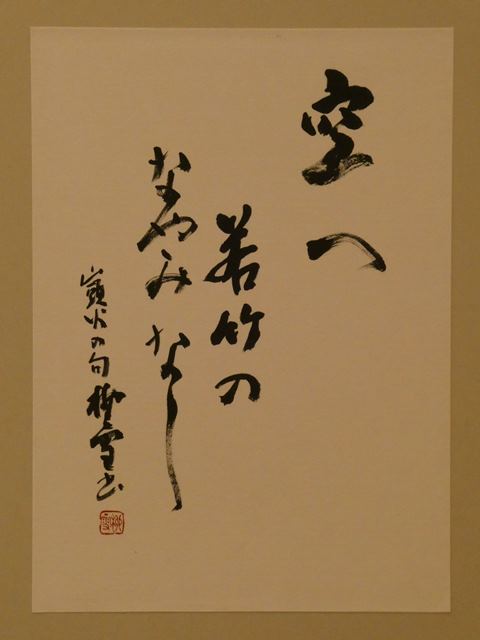 空へ
若竹の
なやみなし
山頭火の句 柳雪書